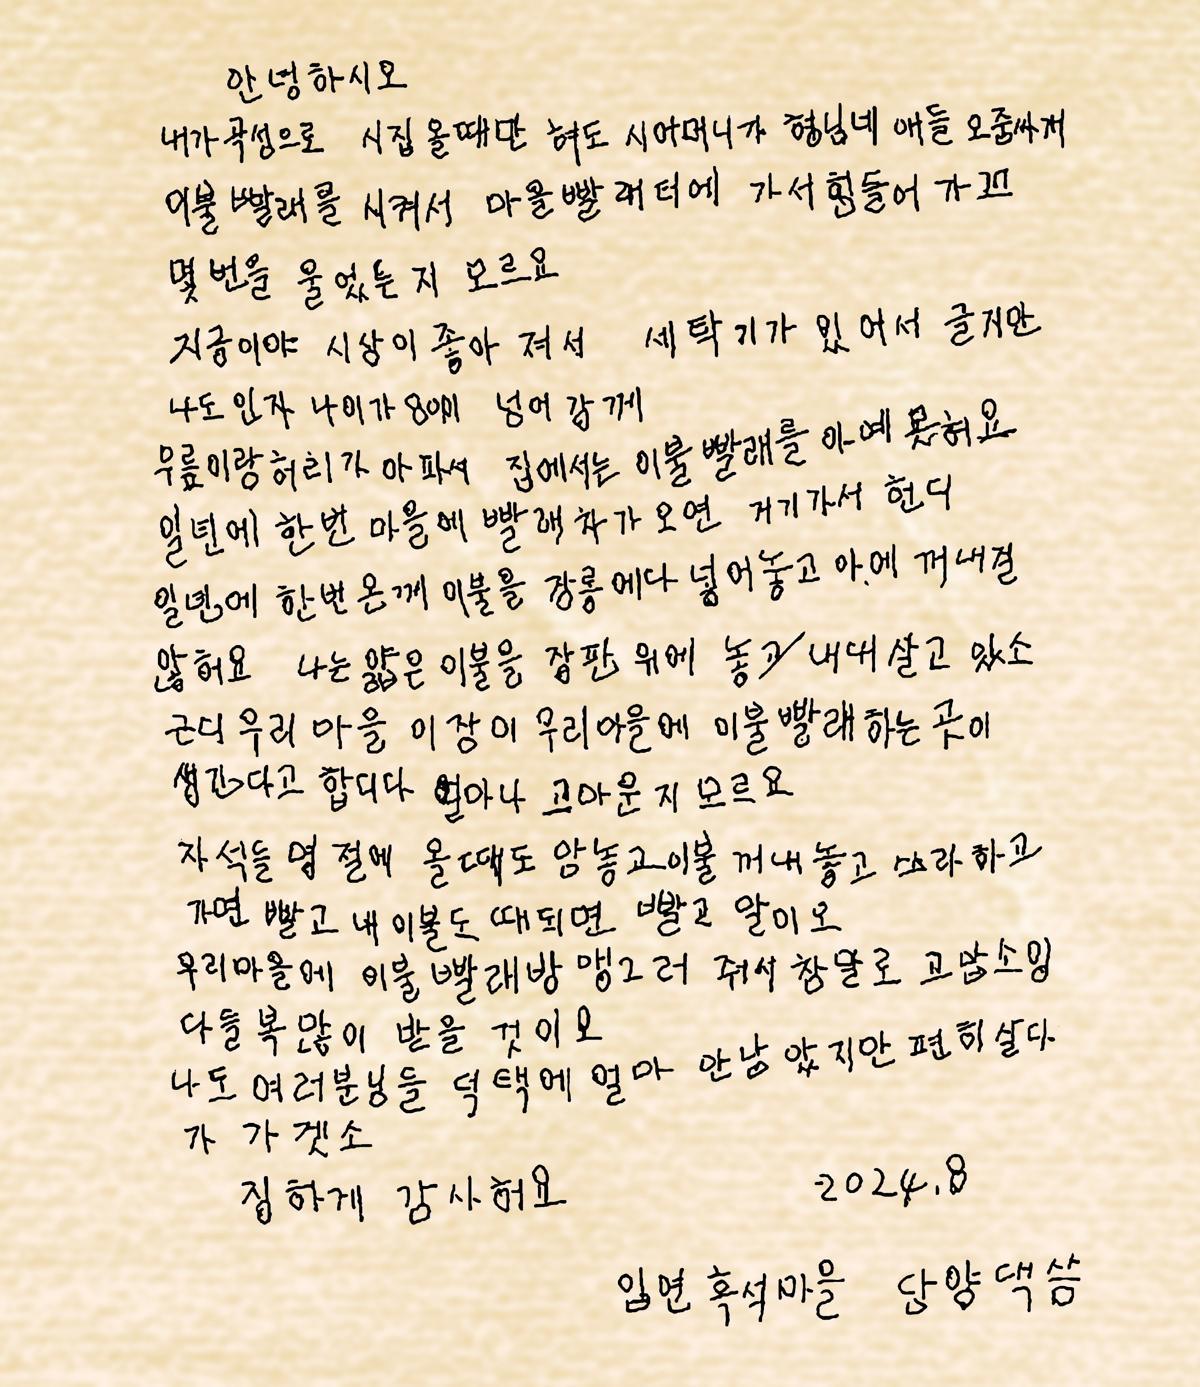 안녕하시오
내가 곡성으로 시집 올때만 혀도 시어머니가 형님네 애들 오줌싸게
이불 빨래를 시켜서 마을빨래터에 가서 힘들어 가꼬
몇 번을 울었는지 모르요
지금이야 시상이 좋아 져서 세탁기가 있어서 글지만
나도 인자 나이가 80이 넘어 감께
무릎이랑 허리가 아파서 집에서는 이불빨래를 아예 못혀요
일년에 한번 마을에 빨래차가 오면 거기가서 헌디
일년에 한번 온께 이불을 장롱에다 넣어놓고 아예 꺼내질
않혀요 나는 얇은 이불을 장판 위에 놓고 내대 살고 있소
근디 우리 마을 이장이 우리마을에 이불빨래하는 곳이
생긴다고 합디다 얼마나 고마운지 모르요
자석들 명절에 올 때도 암놓고 이불 꺼내놓고 쓰라하고
가면 빨고 내 이불도 때되면 빨고 말이오
우리마을에 이불 빨래방 맹그러 줘서 참말로 고맙소잉
다들 복 많이 받을 것이오
나도 여러분님들 덕택에 얼마 안남았지만 편히살다
가 가겟소
집하게 감사혀요 2024.8
입면 흑석마을 담양댁 씀